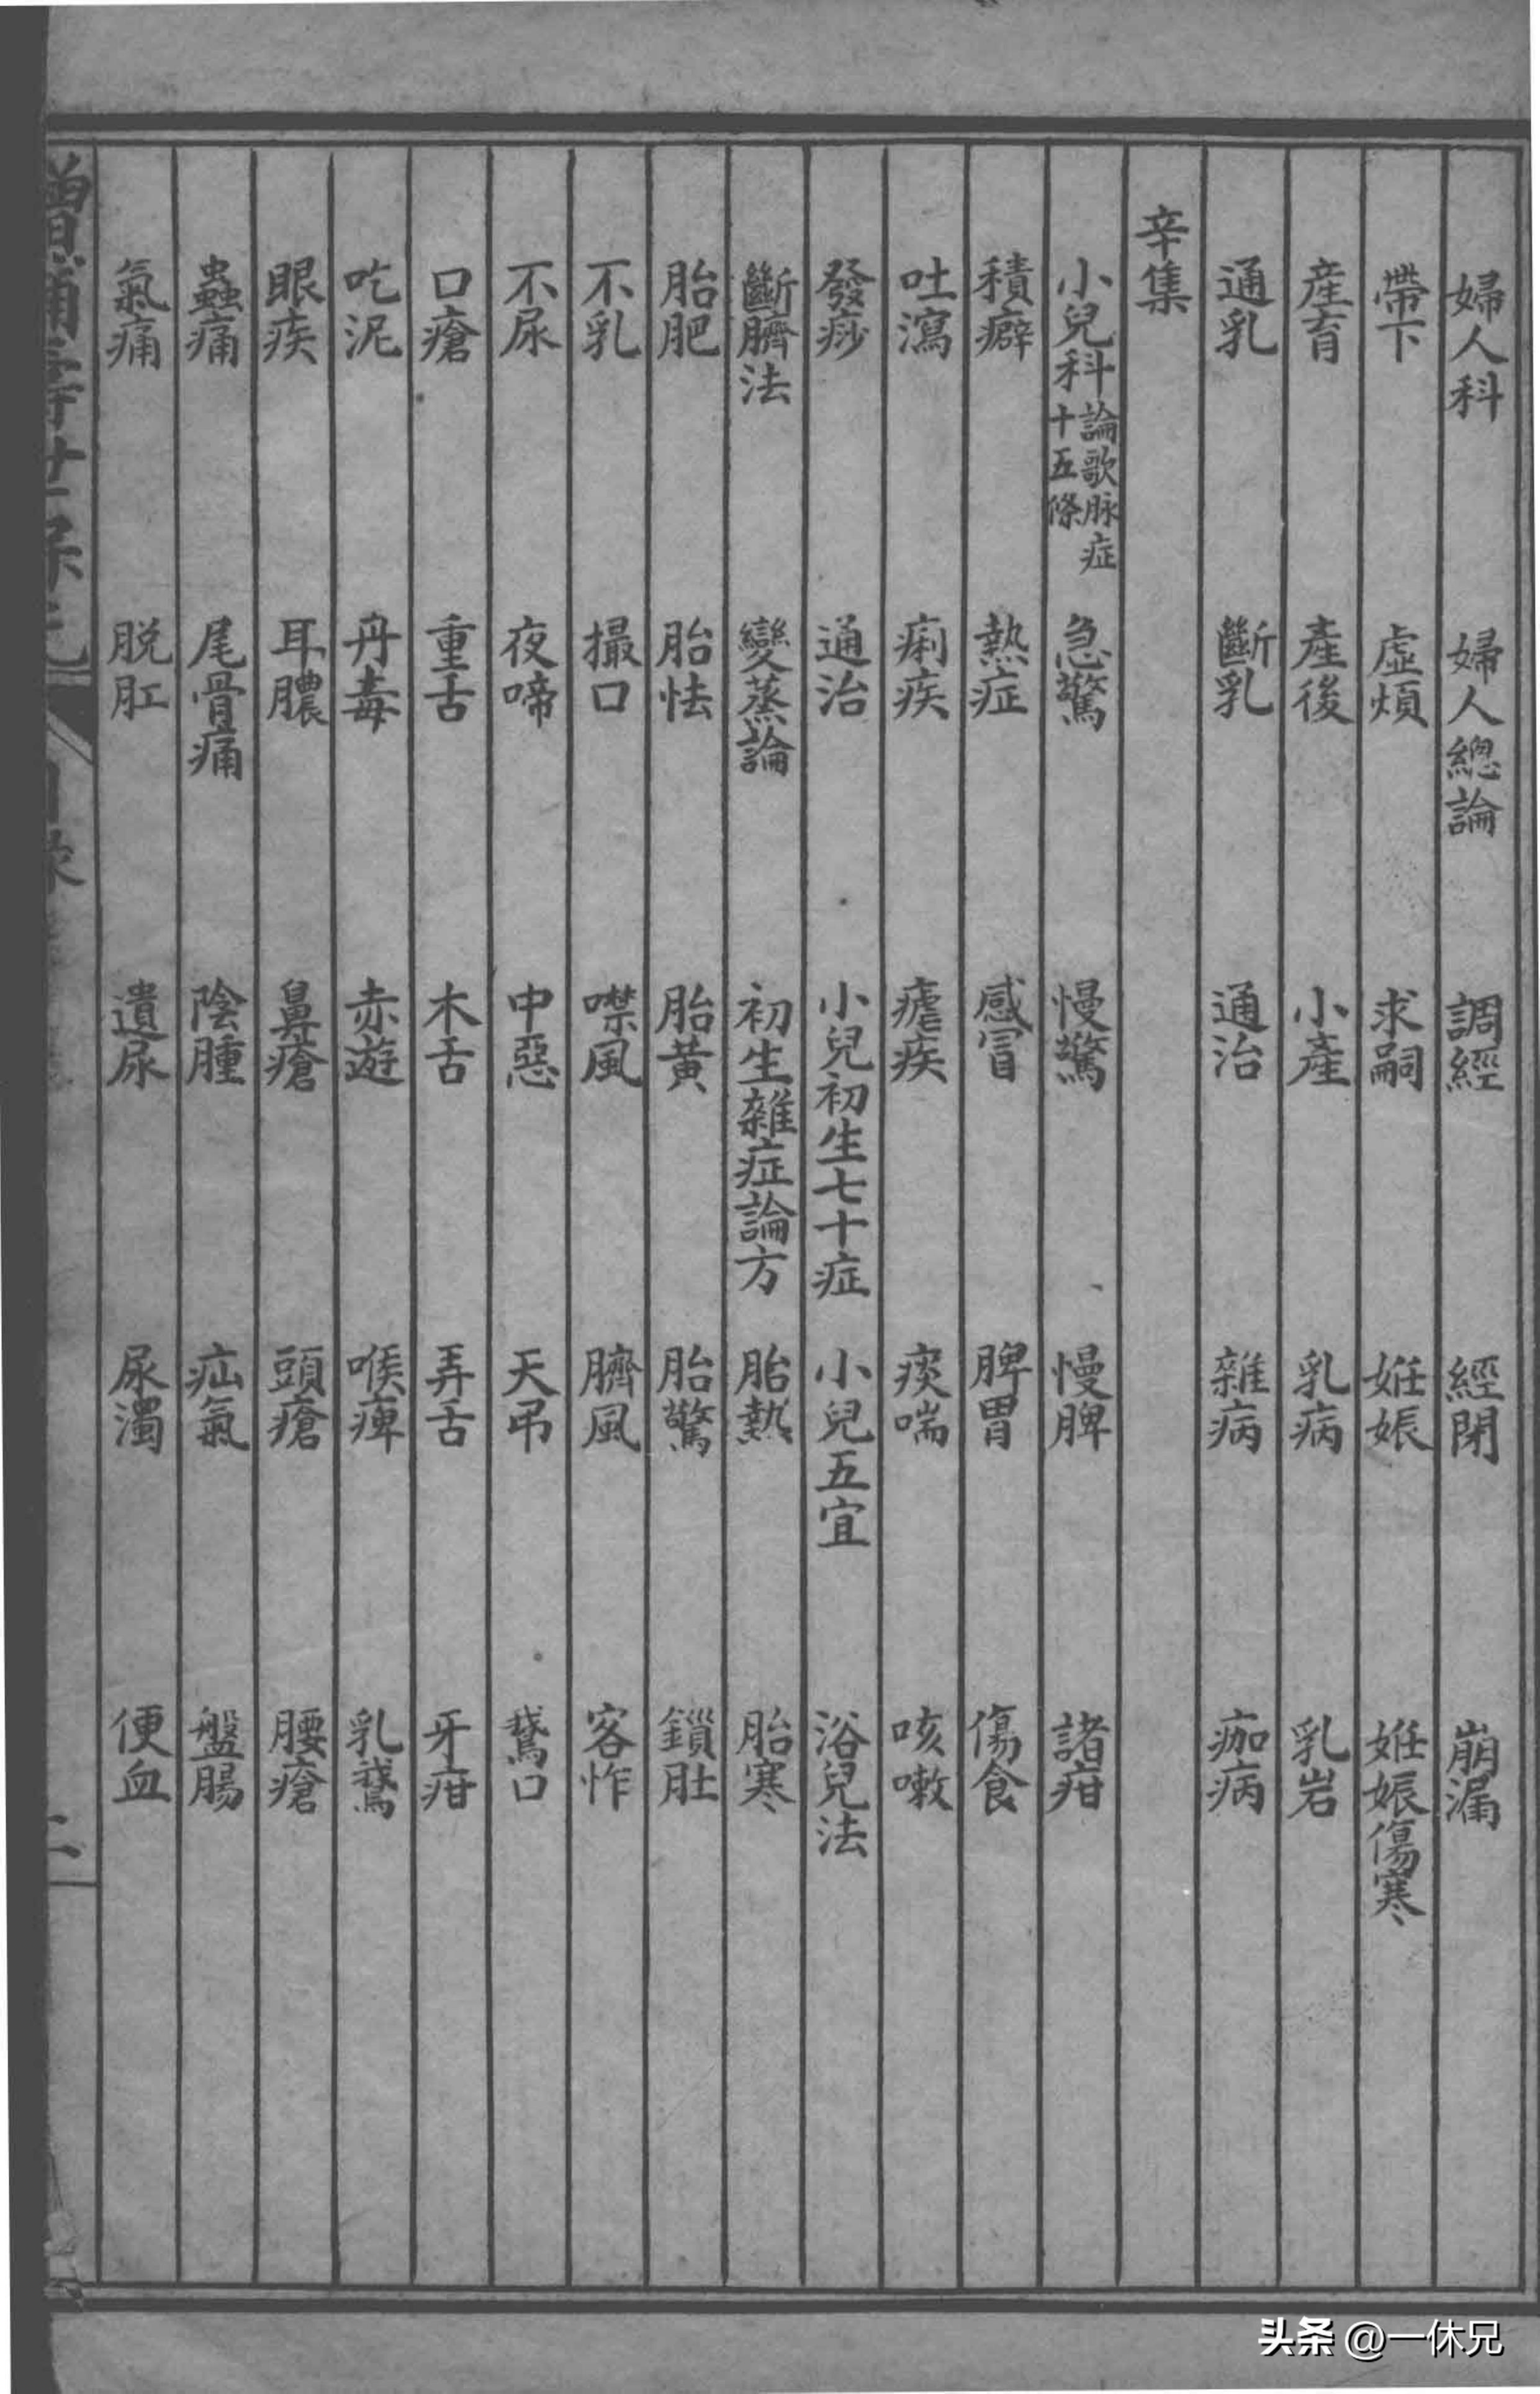 婦人科 婦人總論 調經 經閉 崩漏
帶下 虛煩 求嗣 姙娠 姙娠傷寒
產育 產後 小產 乳病 乳岩
通乳 斷乳 通治 雜病 痂病
辛集
小兒科 論歌脉症十五條 急驚 慢驚 慢脾 諸疳
積癖 熱症 感冒 脾胃 傷食
吐瀉 痢疾 瘧疾 痰喘 咳嗽
發痧 通治 小兒初生七十症 小兒五宜 浴兒法
斷臍法 變蒸論 初生雜症論方 胎熱 胎寒
胎肥 胎怯 胎黃 胎驚 鎖肚
不乳 撮口 噤風 臍風 客忤
不尿 夜啼 中惡 天吊 鵞口
口瘡 重舌 木舌 弄舌 牙疳
吃泥 丹毒 赤遊 喉痺 乳鵞
眼疾 耳膿 鼻瘡 頭瘡 腰瘡
蟲痛 尾骨痛 陰腫 疝氣 盤腸
氣痛 脱肛 遺尿 尿濁 便血
頭条 @一休兄